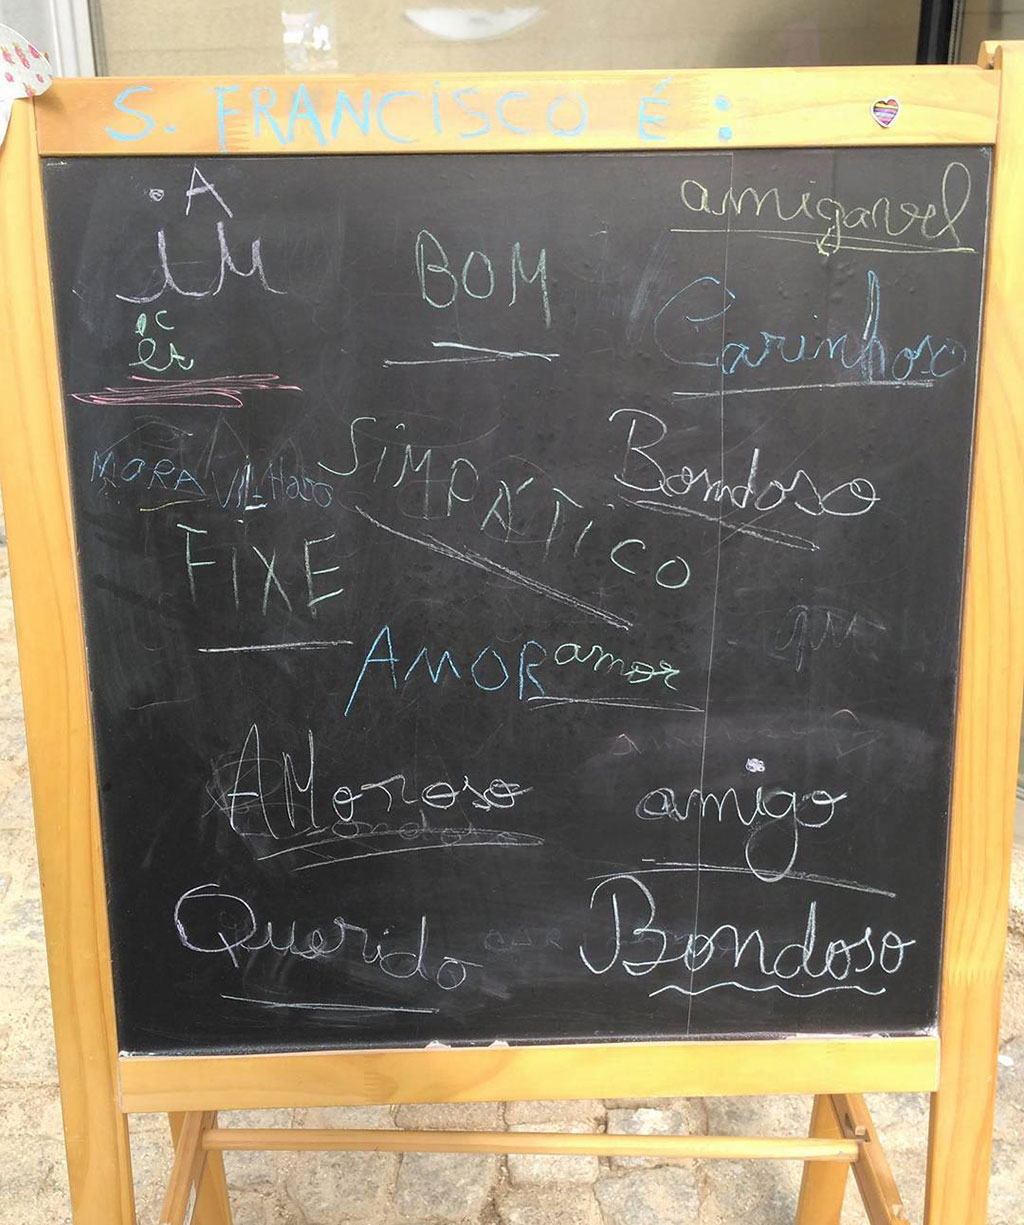 S. FRANCISCO É:
A
iu
amigavel
BOM
Carinhoso
MORAVILHOSO
SIMPÁTICO
Bomdoso
FIXE
AMOR amor
AMoroso
amigo
Querido
Bondoso